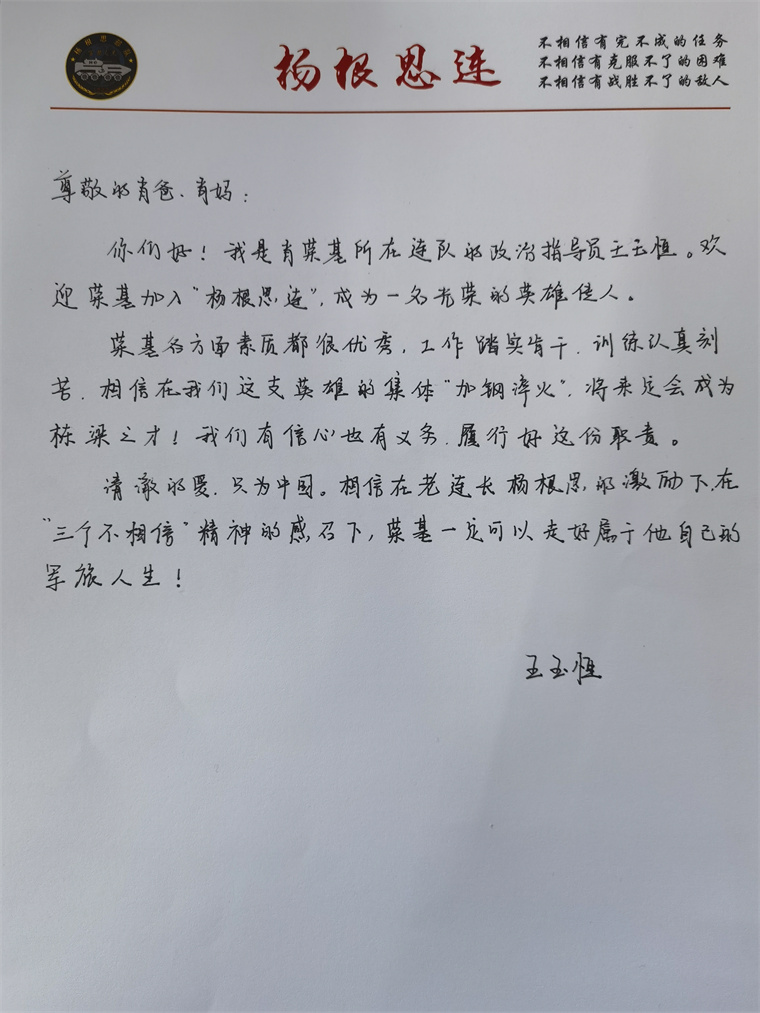 杨根思连
杨根思连
不相信有完不成的任务
不相信有克服不了的困难
不相信有战胜不了的敌人
尊敬的肖爸、肖妈：
你们好！我是肖荣基所在连队的政治指导员王玉恒。欢
迎荣基加入“杨根思连”，成为一名光荣的英雄传人。
荣基各方面素质都很优秀，工作踏实肯干，训练认真刻
苦，相信在我们这支英雄的集体“加钢淬火”，将来定会成为
栋梁之才！我们有信心也有义务，履行好这份职责。
清澈的爱，只为中国。相信在老连长杨根思的激励下，在
“三个不相信”精神的感召下，荣基一定可以走好属于他自己的
军旅人生！
王玉恒